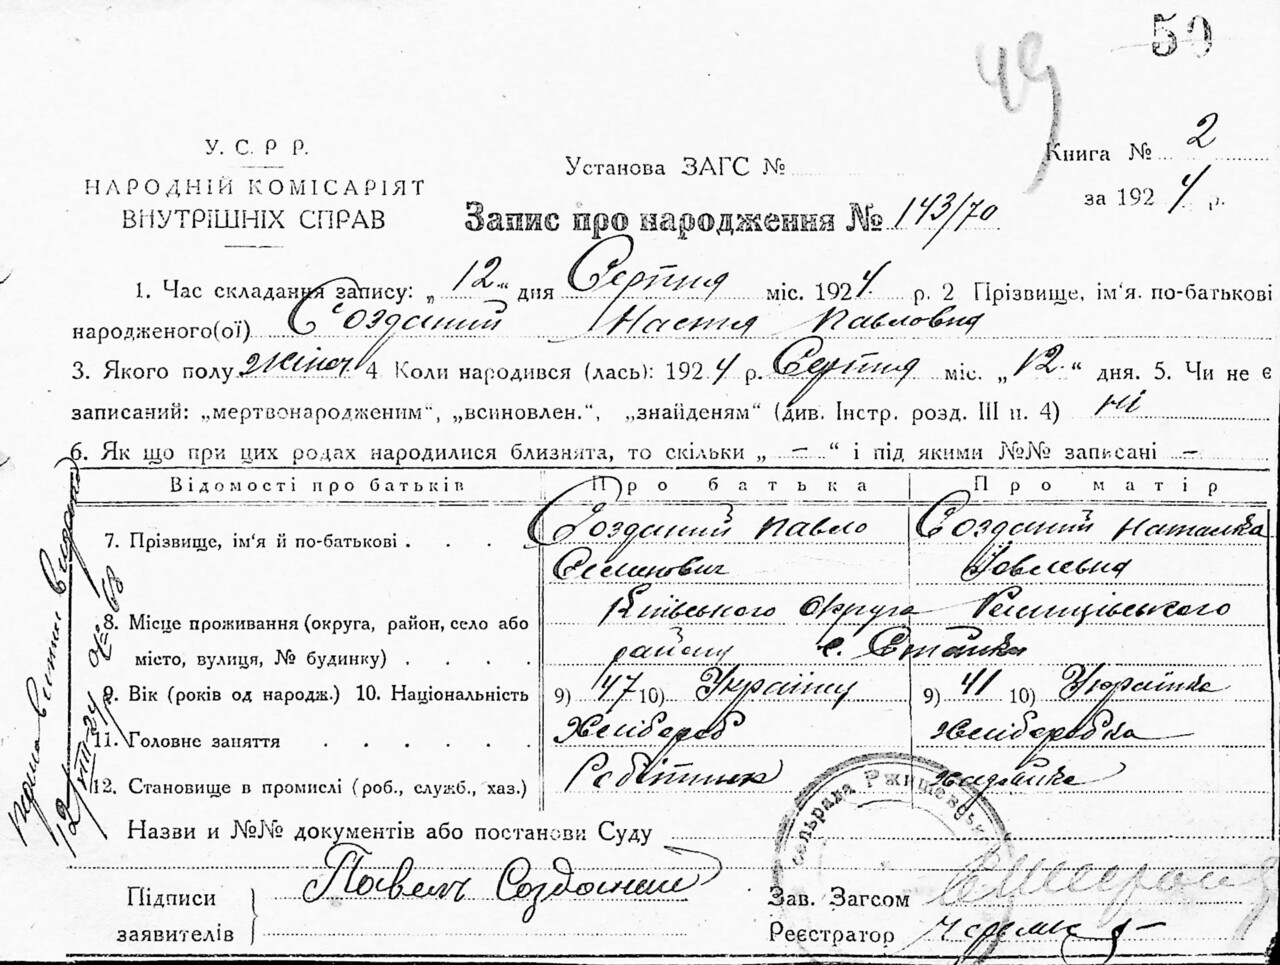 50
49
У. С. Р Р.
НАРОДНІЙ КОМІСАРІЯТ
ВНУТРІШНІХ СПРАВ
Установа ЗАГС №
Книга № 2
за 1924 р.
Запис про народження № 143/70
1. Час складання запису: „12“ дня Серпня міс. 1924 р. 2 Прізвище, ім'я. по-батькові
народженого(ої) Созданий Настя Павловна
3. Якого полу жіноч 4 Коли народився (лась): 1924 р. Серпня міс. „12“ дня. 5. Чи не є
записаний: „мертвонародженим“, „всиновлен.“, „знайденям“ (див. Інстр. розд. III п. 4) ні
6. Як що при цих родах народилися близнята, то скільки „ — “ і під якими №№ записані —
Відомості про батьків Про батька Про матір
7. Прізвище, ім'я й по-батькові . . . . Созданий Павло Созданий Наталка
8. Місце проживання (округа, район, село або Київського Округа
місто, вулиця, № будинку) . . . . району с.
9. Вік (років од народж.) 10. Національність 9) 47 10) Українец 9) 41 10) Українка
11. Головне заняття . . . . . . Хлібороб Хліборобка
12. Становище в промислі (роб., служб., хаз.) хазяйка
Назви и №№ документів або постанови Суду
Підписи
заявителів
Павелъ Созданий
Зав. Загсом
Реєстратор
сільрада Ржищевськ
12/VIII-24